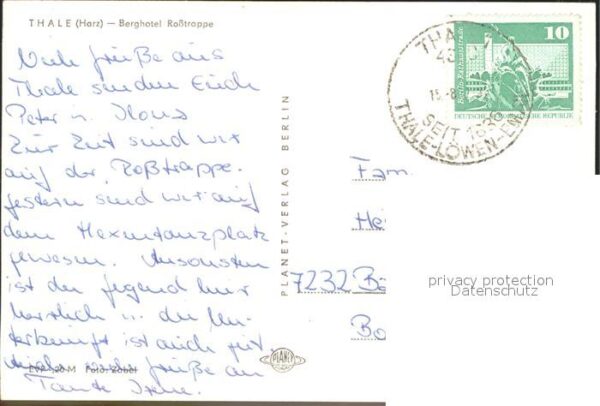 THALE (Harz) — Berghotel Roßtrappe
Viele Grüße aus
Thale senden Euch
Peter u. Ilona
Zur Zeit sind wir
auf der Roßtrappe.
gestern sind wir auf
dem Hexentanzplatz
gewesen. Ansonsten
ist die Gegend hier
herrlich u. die Un-
terkunft ist auch gut.
viele Grüße an
Tante Irene.
EVP -,20 M Foto: Zobel
PLANET-VERLAG BERLIN
PLANET
THALE
15.-8.
SEIT 1836
THALE-LÖWEN-EM
10
Berlin, Rathausstraße
DEUTSCHE DEMOKRATISCHE REPUBLIK
Fam.
He
7232 Ba
Bo
privacy protection
Datenschutz